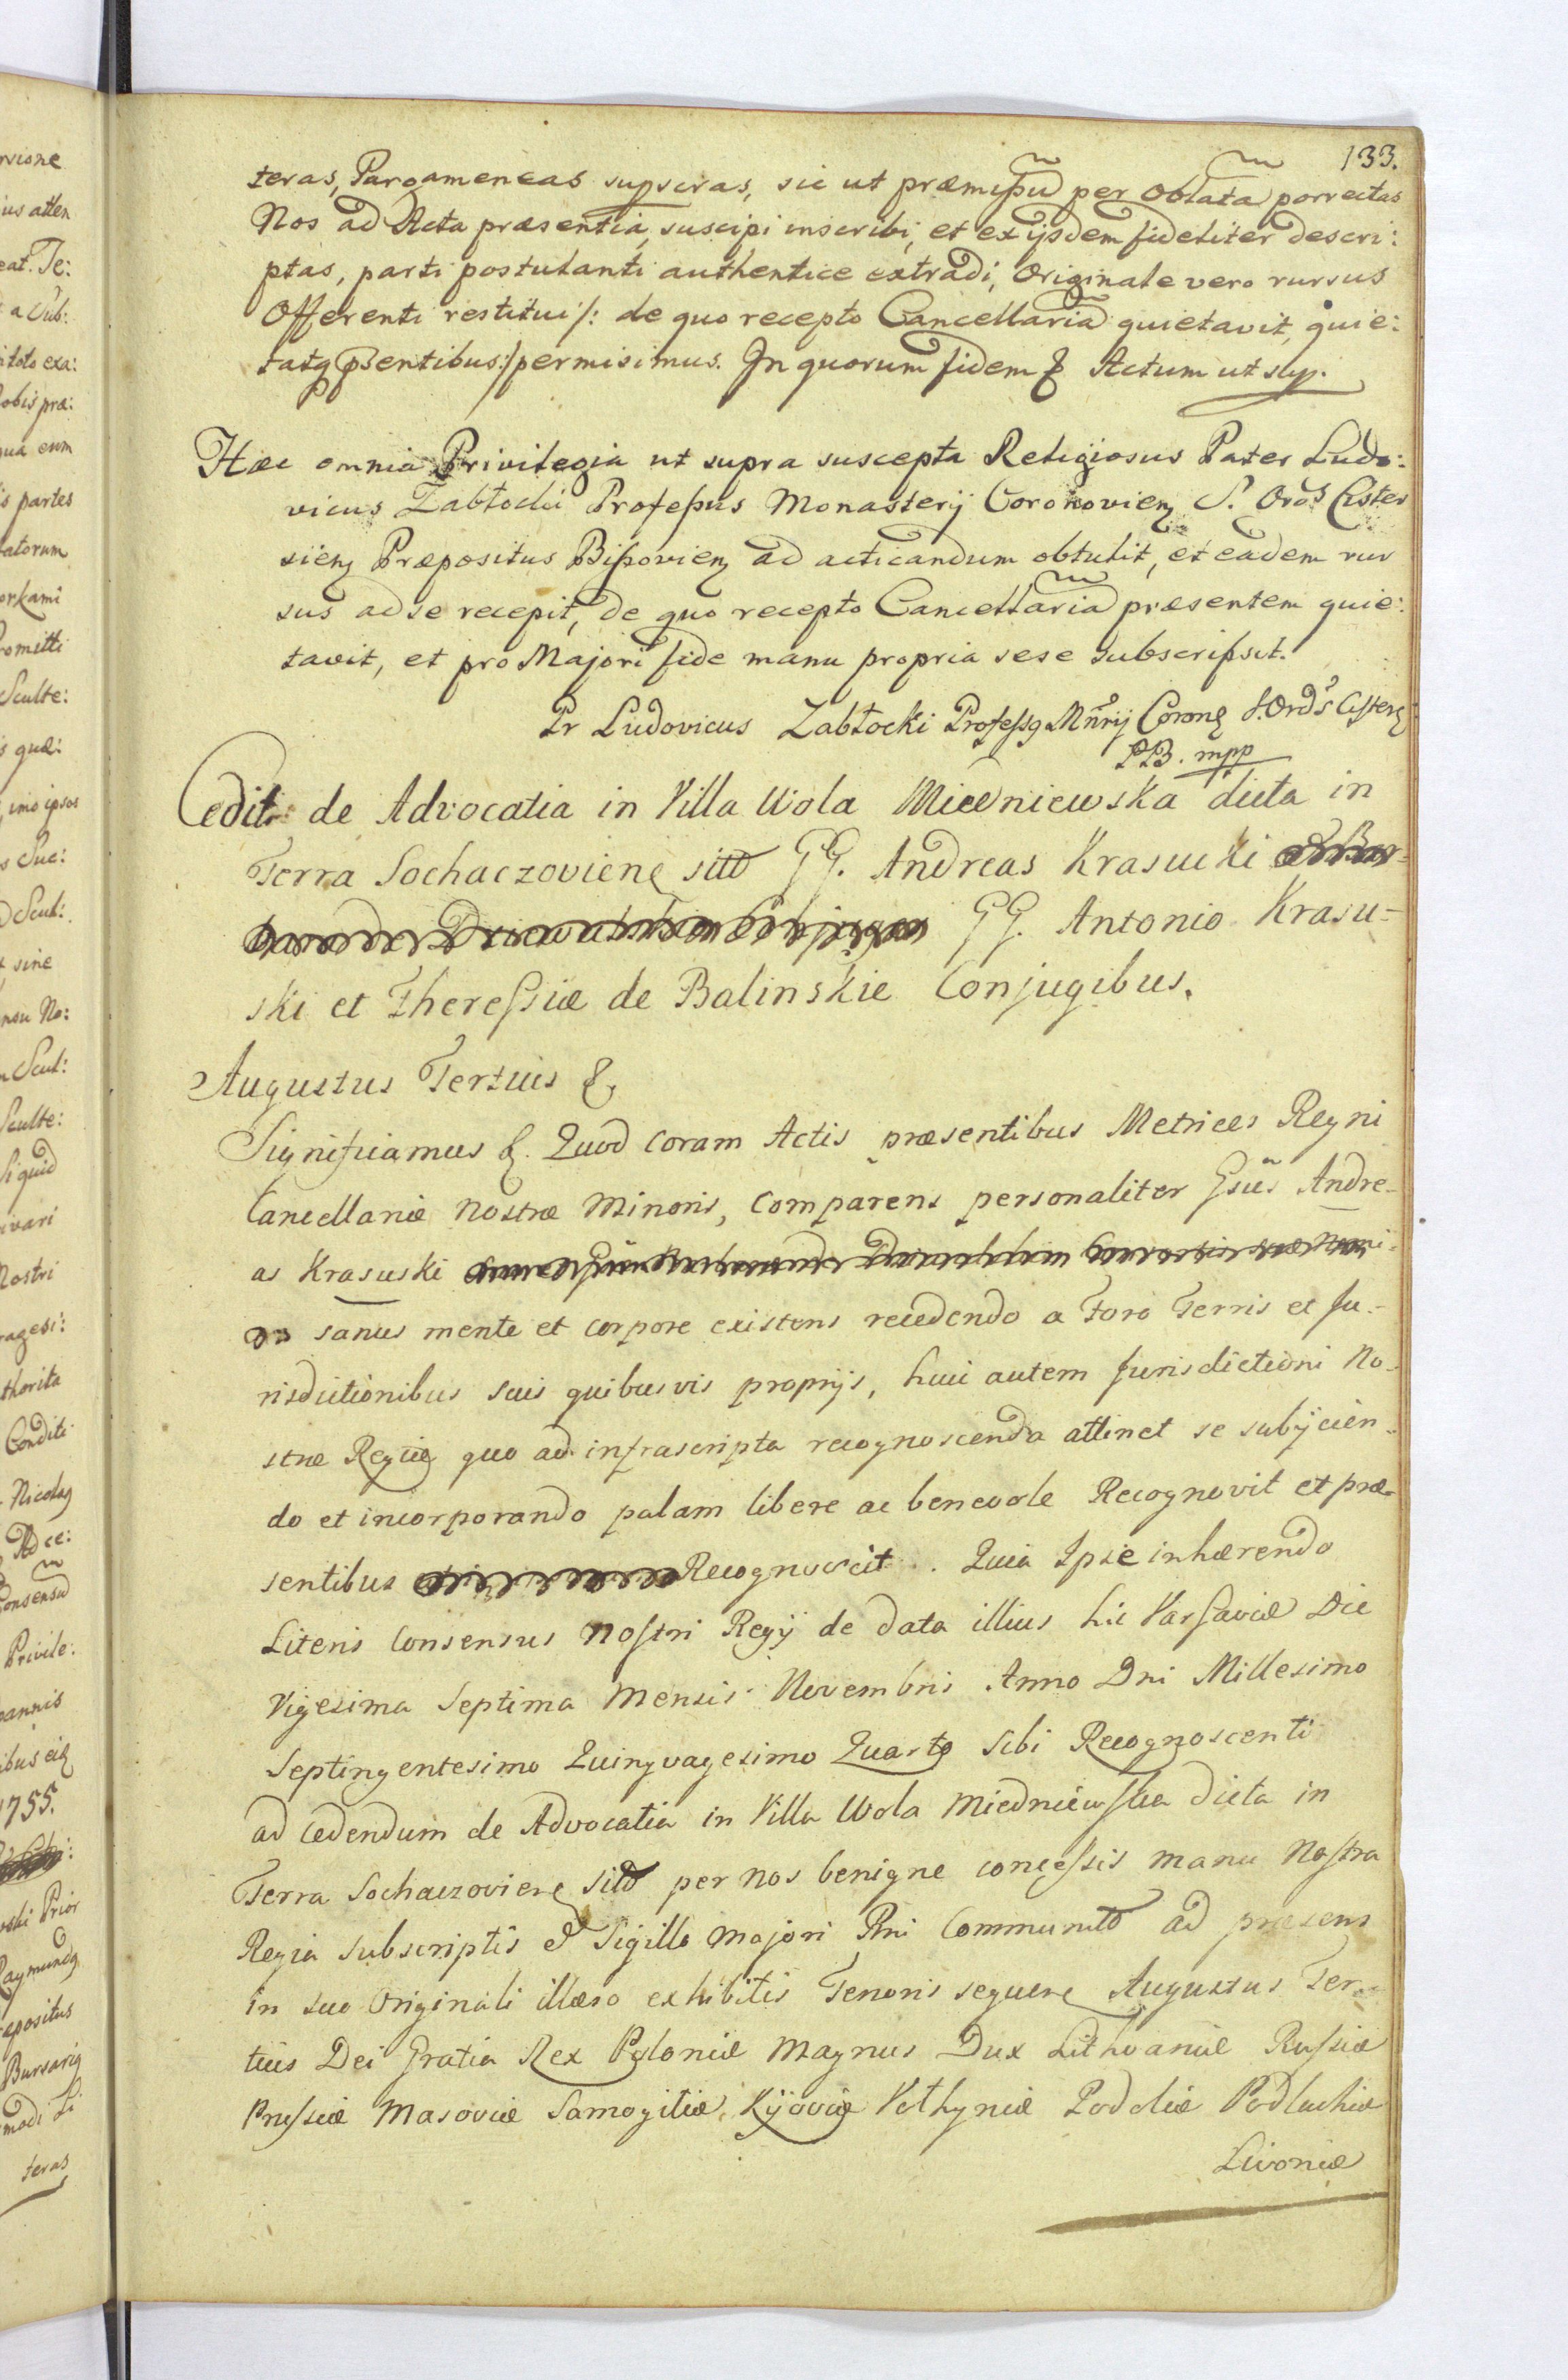 133.
teras, Pargameneas supscras, sic ut præmißũ per Oblatã porrectas
Nos ad Acta præsentia, suscipi inscribi, et ex ijsdem fideliter descri:
ptas, parti postulanti authentice extradi, Originale vero rursus
Offerenti restitui /: de quo recepto Cancellariã quietavit, quie:
tatq psentibus :/ permisimus. In quorum fidem & Actum ut sup.
Hæc omnia Privilegia ut supra suscepta Religiosus Pater Ludo:
vicus Zabłocki Profeßus Monasterij Coronovieñ S. Ords Cister
sieñ Præpositus Bißovieñ ad acticandum obtulit, et eadem rur
sus ad se recepit, de quo recepto Cancellariã præsentem quie:
tavit, et pro Majori fide manu propria sese subscripsit.
Pr Ludovicus Zabłocki Profeßg Mñrij Coronẽ S. Ords Cisterẽ
PB. mpp
Cedit: de Advocatia in Villa Wola Miedniewska dicta in
Terra Sochaczovienẽ sitt GG. Andreas Krasucki
GG. Antonio Krasu-
ski et Thereßiæ de Balinskie Conjugibus.
Augustus Tertius &
Significamus &. Quod Coram Actis præsentibus Metrices Regni
Cancellariæ Nostræ Minoris, Comparens personaliter Gsũs Andre-
as Krasuski
sanus mente et corpore existens recedendo a Foro Terris et Ju-
risdictionibus suis quibusvis proprijs, huic autem Jurisdictioni No-
stræ Regiæ quo ad infrascripta recognoscenda attinet se subijcien-
do et incorporando palam libere ac benevole Recognovit et præ-
sentibus Recognoscit. Quia Ipse inhærendo
Literis Consensus Nostri Regij de data illius hic Varsaviæ Die
Vigesima Septima Mensis Novembris Anno Dni Millesimo
Septingentesimo Quinqvagesimo Quarto Sibi Recognoscenti
ad Cedendum de Advocatia in Villa Wola Miedniewska dicta in
Terra Sochaczovienẽ sitt per Nos benigne concessis manu Nostra
Regia subscriptis et Sigillo Majori Rni Communitt ad præsens
in suo Originali illæso exhibitis Tenoris sequenẽ Augustus Ter-
tius Dei Gratia Rex Poloniæ Magnus Dux Lithvaniæ Rußiæ
Prußiæ Masoviæ Samogitiæ Kijoviæ Volhyniæ Podoliæ Podlachiæ
Livoniæ